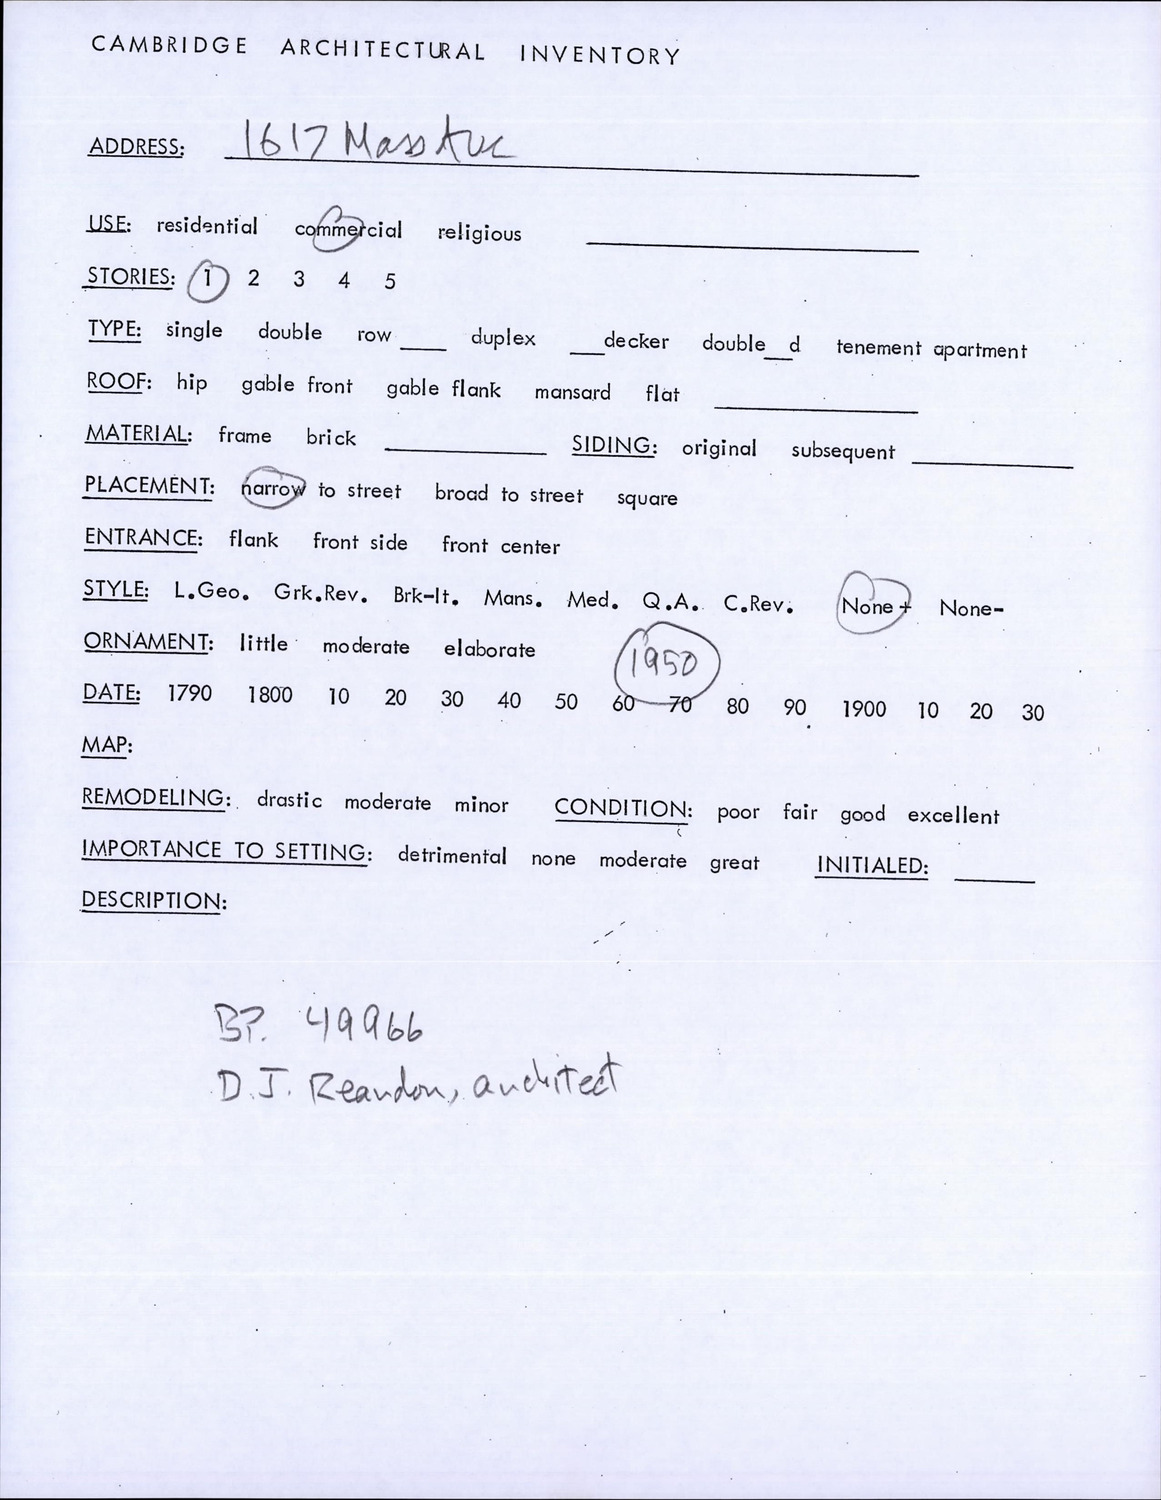 CAMBRIDGE ARCHITECTURAL INVENTORY
ADDRESS: 1617 Mass Ave
USE: residential commercial religious
STORIES: 1 2 3 4 5
TYPE: single double row ___ duplex ___decker double__d tenement apartment
ROOF: hip gable front gable flank mansard flat
MATERIAL: frame brick SIDING: original subsequent
PLACEMENT: narrow to street broad to street square
ENTRANCE: flank front side front center
STYLE: L.Geo. Grk.Rev. Brk-It. Mans. Med. Q.A. C.Rev. None+ None-
ORNAMENT: little moderate elaborate 1950
DATE: 1790 1800 10 20 30 40 50 60 70 80 90 1900 10 20 30
MAP:
REMODELING: drastic moderate minor CONDITION: poor fair good excellent
IMPORTANCE TO SETTING: detrimental none moderate great INITIALED:
DESCRIPTION:
BP. 49966
D.J. Reardon, architect